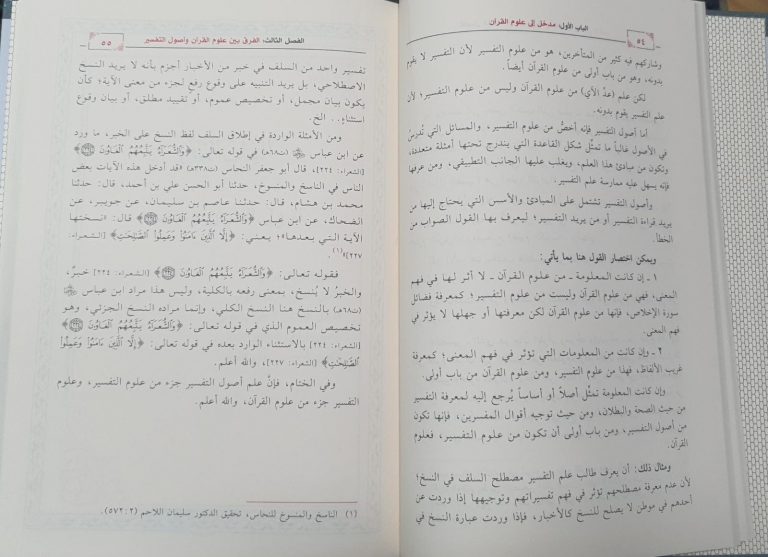 ٥٤
الباب الأول: مدخل إلى علوم القرآن
وشاركهم فيه كثير من المتأخرين، هو من علوم التفسير لأن التفسير لا يقوم
بدونه، وهو من باب أولى من علوم القرآن أيضاً.
لكن علم (عدِّ الآي) من علوم القرآن وليس من علوم التفسير؛ لأن
علم التفسير يقوم بدونه.
أما أصول التفسير فإنه أخصُّ من علوم التفسير، والمسائل التي تُدرس
في الأصول غالباً ما تمثِّل شكل القاعدة التي يندرج تحتها أمثلة متعددة،
وتكون من مبادئ هذا العلم، ويغلب عليها الجانب التطبيقي، ومن عرفها
فإنه يسهل عليه ممارسة علم التفسير.
وأصول التفسير تشتمل على المبادئ والأسس التي يحتاج إليها من
يريد قراءة التفسير أو من يريد التفسير؛ ليعرف بها القول الصواب من
الخطأ.
ويمكن اختصار القول هنا بما يأتي:
١ ـ إن كانت المعلومة ـ من علوم القرآن ـ لا أثر لها في فهم
المعنى، فهي من علوم القرآن وليست من علوم التفسير؛ كمعرفة فضائل
سورة الإخلاص، فإنها من علوم القرآن لكن معرفتها أو جهلها لا يؤثر في
فهم المعنى.
٢ ـ وإن كانت من المعلومات التي تؤثر في فهم المعنى؛ كمعرفة
غريب الألفاظ، فهذا من علوم التفسير، ومن علوم القرآن من باب أولى.
وإن كانت المعلومة تمثِّل أصلاً أو أساساً يُرجع إليه لمعرفة التفسير
من حيث الصحة والبطلان، ومن حيث توجيه أقوال المفسرين، فإنها تكون
من أصول التفسير، ومن باب أولى أن تكون من علوم التفسير، فعلوم
القرآن.
ومثال ذلك: أن يعرف طالب علم التفسير مصطلح السلف في النسخ؛
لأن عدم معرفة مصطلحهم تؤثر في فهم تفسيراتهم وتوجيهها إذا وردت عن
أحدهم في موطن لا يصلح للنسخ كالأخبار، فإذا وردت عبارة النسخ في
الفصل الثالث: الفرق بين علوم القرآن وأصول التفسير
٥٥
تفسير واحد من السلف في خبر من الأخبار أجزم بأنه لا يريد النسخ
الاصطلاحي، بل يريد التنبيه على وقوع رفع لجزء من معنى الآية؛ كأن
يكون بيان مجمل، أو تخصيص عموم، أو تقييد مطلق، أو بيان وقوع
استثناء.. إلخ.
ومن الأمثلة الواردة في إطلاق السلف لفظ النسخ على الخبر، ما ورد
عن ابن عباس (ت٦٨هـ) في قوله تعالى: ﴿وَالشُّعَرَاءُ يَتَّبِعُهُمُ الْغَاوُونَ﴾
[الشعراء: ٢٢٤]، قال أبو جعفر النحاس (ت٣٣٨هـ): «قد أدخل هذه الآيات بعض
الناس في الناسخ والمنسوخ، حدثنا أبو الحسن علي بن أحمد، قال: حدثنا
محمد بن هشام، قال: حدثنا عاصم بن سليمان، عن جويبر، عن
الضحاك، عن ابن عباس ﴿وَالشُّعَرَاءُ يَتَّبِعُهُمُ الْغَاوُونَ﴾ قال: «نسختها
الآية التي بعدها»؛ يعني: ﴿إِلَّا الَّذِينَ ءَامَنُوا وَعَمِلُوا الصَّالِحَاتِ﴾ [الشعراء:
٢٢٧]»(١).
فقوله تعالى: ﴿وَالشُّعَرَاءُ يَتَّبِعُهُمُ الْغَاوُونَ﴾ [الشعراء: ٢٢٤] خبرٌ،
والخبرُ لا يُنسخ، بمعنى رفعه بالكلية، وليس هذا مراد ابن عباس
(ت٦٨هـ) بالنسخ هنا النسخ الكلي، وإنما مراده النسخ الجزئي، وهو
تخصيص العموم الذي في قوله تعالى: ﴿وَالشُّعَرَاءُ يَتَّبِعُهُمُ الْغَاوُونَ﴾
[الشعراء: ٢٢٤] بالاستثناء الوارد بعده في قوله تعالى: ﴿إِلَّا الَّذِينَ ءَامَنُوا وَعَمِلُوا
الصَّالِحَاتِ﴾ [الشعراء: ٢٢٧]، والله أعلم.
وفي الختام، فإنَّ علم أصول التفسير جزء من علوم التفسير، وعلوم
التفسير جزء من علوم القرآن، والله أعلم.
(١) الناسخ والمنسوخ للنحاس، تحقيق الدكتور سليمان اللاحم (٢: ٥٧٢).